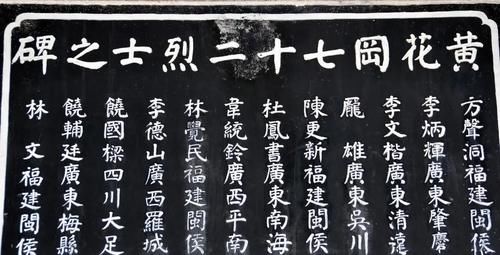 黃花岡七十二烈士之碑
方聲洞福建閩侯
李炳輝廣東肇慶
李文楷廣東清遠
龐 雄廣東吳川
陳更新福建閩侯
杜鳳書廣東南海
韋統鈴廣西平南
林覺民福建閩侯
李德山廣西羅城
饒國樑四川大足
饒輔廷廣東梅縣
林 文福建閩侯